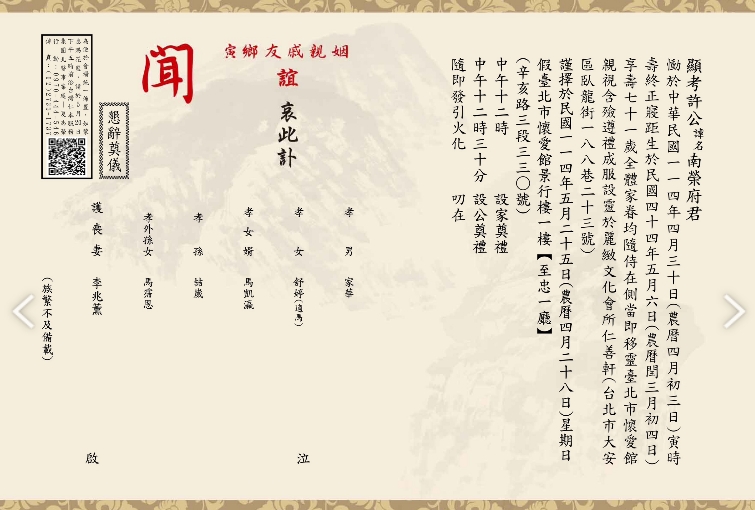 顯考許公諱名南榮府君
慟於中華民國一一四年四月三十日(農曆四月初三日)寅時
壽終正寢距生於民國四十四年五月六日(農曆閏三月初四日)
享壽七十一歲全體家眷均隨侍在側當即移靈臺北市懷愛館
親視含殮遵禮成服設靈於麗緻文化會所仁善軒(台北市大安
區臥龍街一八八巷二十三號)
謹擇於民國一一四年五月二十五日(農曆四月二十八日)星期日
假臺北市懷愛館景行樓一樓【至忠一廳】
(辛亥路三段三三〇號)
中午十二時 設家奠禮
中午十二時三十分 設公奠禮
隨即發引火化 叨在
姻親戚友鄉寅
誼 哀此訃
聞
孝男 家華
孝女 舒婷(適馬)
孝女婿 馬凱瀛
孝孫 喆崴
孝外孫女 馬霈恩
護喪妻 李兆薰
泣
啟
(族繁不及備載)
懇辭奠儀